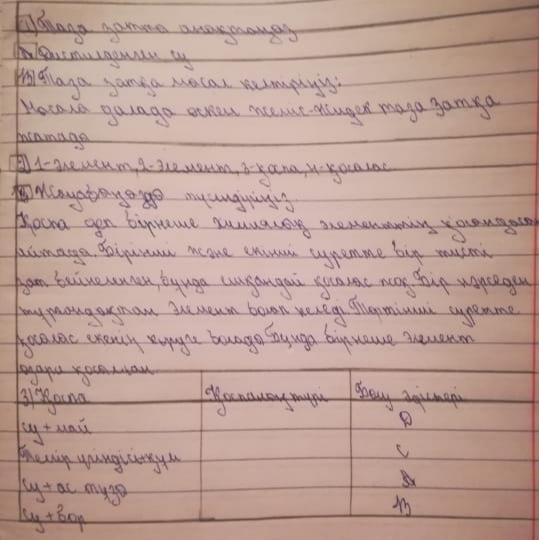 1) Таза затты анықтаңдаз
А) Дистилденген су
В) Таза затқа мысал келтіріңіз:
Мысалы далада өскен жеміс-жидек таза затқа
жатады
2) 1-элемент, 2-элемент, 3-қоспа, 4-қосылыс
В) Жауабыңызды түсіндіріңіз.
Қоспа деп бірнеше химиялық элементтің қосындысын
айтады. Бірінші және екінші суретте бір түсті
зат бейнеленген, бұнда ешқандай қосылыс жоқ. Бір нәрседен
тұрғандықтан элемент болып келеді. Төртінші суретте
қосылыс екенін көруге болады. Бұнда бірнеше элемент
өзара қосылған.
3) Қоспа Қоспаның түрі Бөлу әдістері
су + май D
Темір үгіндісі + құм С
су + ас тұзы А
су + бор В